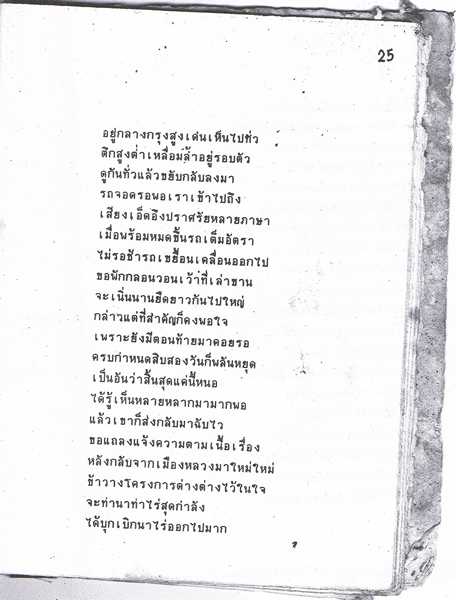 25
อยู่กลางกรุงสูงเด่นเห็นไปทั่ว
ตึกสูงต่ำเหลื่อมล้ำอยู่รอบตัว
ดูกันทั่วแล้วขยับกลับลงมา
รถจอดรอพอเราเข้าไปถึง
เสียงเอ็ดอึงปราศรัยหลายภาษา
เมื่อพร้อมหมดขึ้นรถเต็มอัตรา
ไม่รอช้ารถเขยื้อนเคลื่อนออกไป
ขอพักกลอนวอนเว้าที่เล่าขาน
จะเนิ่นนานยืดยาวกันไปใหญ่
กล่าวแต่ที่สำคัญก็คงพอใจ
เพราะยังมีตอนท้ายมาคอยรอ
ครบกำหนดสิบสองวันก็พลันหยุด
เป็นอันว่าสิ้นสุดแค่นี้หนอ
ได้รู้เห็นหลายหลากมามากพอ
แล้วเขาก็ส่งกลับมาฉับไว
ขอแถลงแจ้งความตามเนื้อเรื่อง
หลังกลับจากเมืองหลวงมาใหม่ใหม่
ข้าวางโครงการต่างต่างไว้ในใจ
จะทำนาทำไร่สุดกำลัง
ได้บุกเบิกนาไร่ออกไปมาก